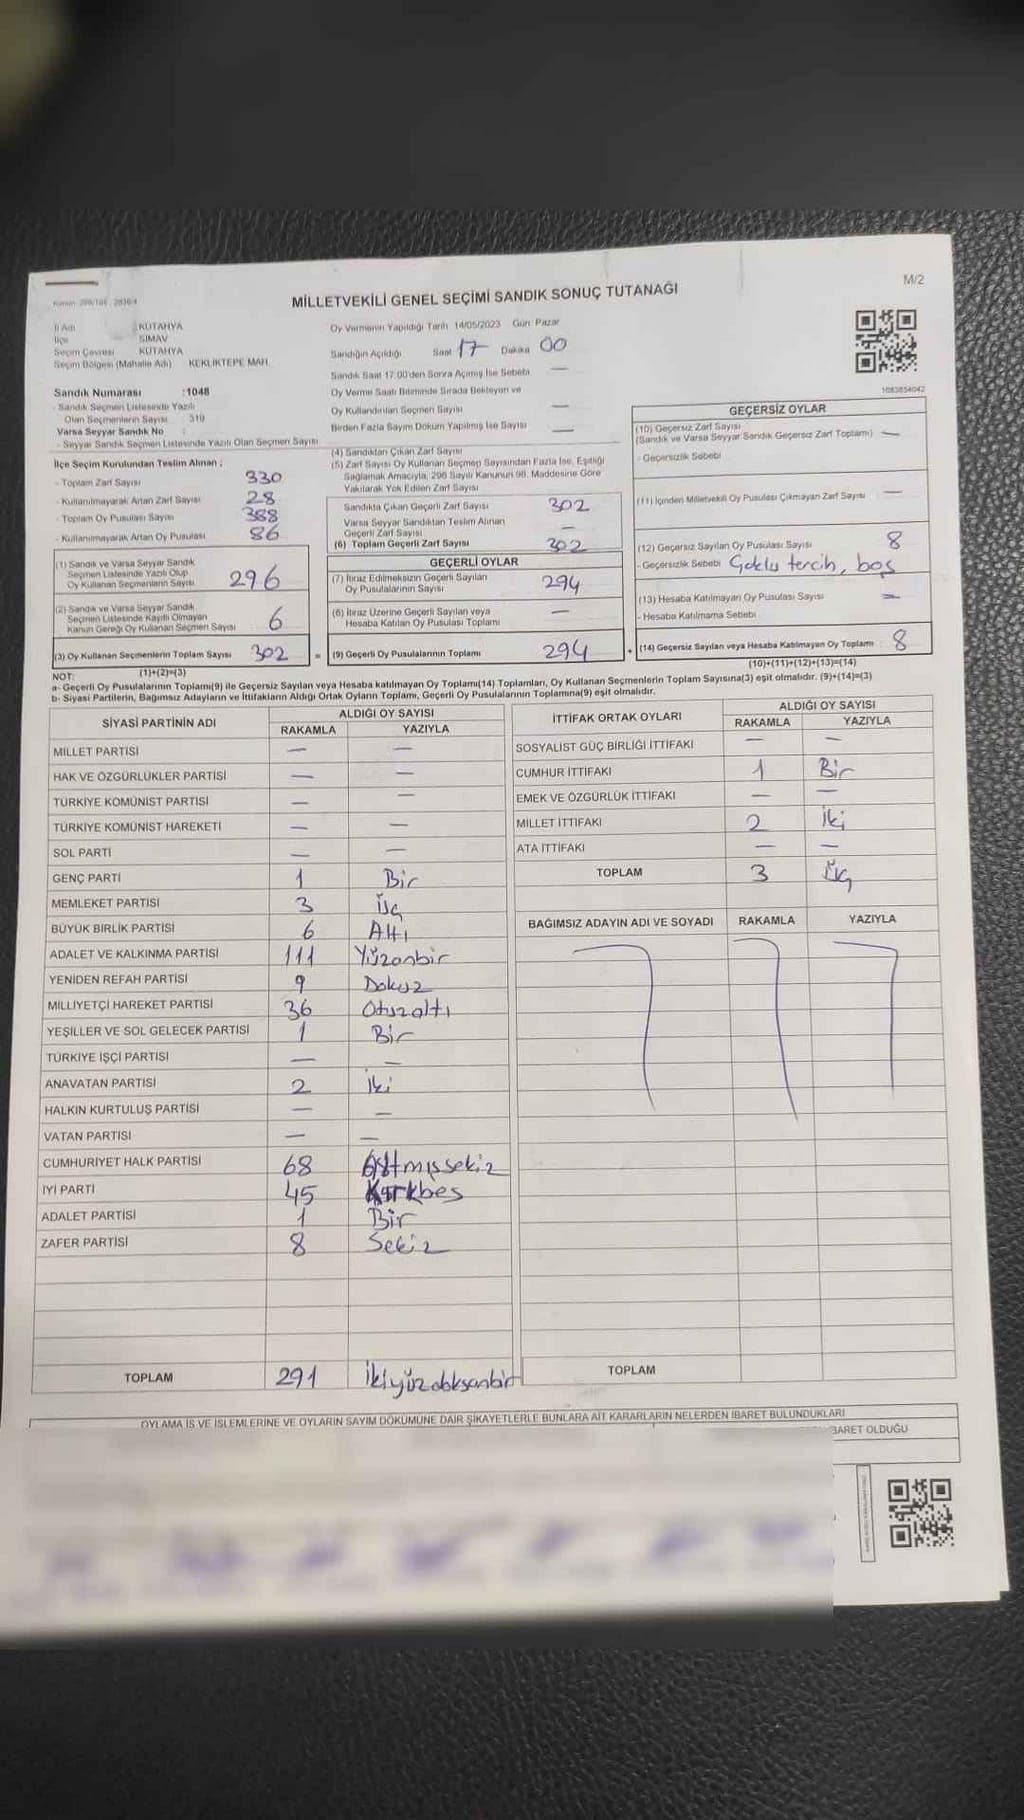 M/2
MİLLETVEKİLİ GENEL SEÇİMİ SANDIK SONUÇ TUTANAĞI
İl Adı KÜTAHYA
İlçe SİMAV
Seçim Çevresi KÜTAHYA
Seçim Bölgesi (Mahalle Adı) KEKLİKTEPE MAH.
Sandık Numarası :1048
- Sandık Seçmen Listesinde Yazılı
Olan Seçmenlerin Sayısı 319
Varsa Seyyar Sandık No :
- Seyyar Sandık Seçmen Listesinde Yazılı Olan Seçmen Sayısı
Oy Vermenin Yapıldığı Tarih 14/05/2023 Gün: Pazar
Sandığın Açıldığı Saat 17 Dakika 00
Sandık Saat 17:00'den Sonra Açılmış İse Sebebi —
Oy Verme Saati Bitiminde Sırada Bekleyen ve
Oy Kullandırılan Seçmen Sayısı —
Birden Fazla Sayım Döküm Yapılmış İse Sayısı —
1083854042
İlçe Seçim Kurulundan Teslim Alınan ;
- Toplam Zarf Sayısı 330
- Kullanılmayarak Artan Zarf Sayısı 28
- Toplam Oy Pusulası Sayısı 388
- Kullanılmayarak Artan Oy Pusulası 86
(1) Sandık ve Varsa Seyyar Sandık
Seçmen Listesinde Yazılı Olup
Oy Kullanan Seçmenlerin Sayısı 296
(2) Sandık ve Varsa Seyyar Sandık
Seçmen Listesinde Kayıtlı Olmayan
Kanun Gereği Oy Kullanan Seçmen Sayısı 6
(3) Oy Kullanan Seçmenlerin Toplam Sayısı 302
(1)+(2)=(3)
(4) Sandıktan Çıkan Zarf Sayısı
(5) Zarf Sayısı Oy Kullanan Seçmen Sayısından Fazla İse, Eşitliği
Sağlamak Amacıyla, 298 Sayılı Kanunun 98. Maddesine Göre
Yakılarak Yok Edilen Zarf Sayısı
Sandıkta Çıkan Geçerli Zarf Sayısı 302
Varsa Seyyar Sandıktan Teslim Alınan
Geçerli Zarf Sayısı —
(6) Toplam Geçerli Zarf Sayısı 302
GEÇERLİ OYLAR
(7) İtiraz Edilmeksizin Geçerli Sayılan
Oy Pusulalarının Sayısı 294
(8) İtiraz Üzerine Geçerli Sayılan veya
Hesaba Katılan Oy Pusulası Toplamı —
= (9) Geçerli Oy Pusulalarının Toplamı 294
GEÇERSİZ OYLAR
(10) Geçersiz Zarf Sayısı
(Sandık ve Varsa Seyyar Sandık Geçersiz Zarf Toplamı) —
- Geçersizlik Sebebi
(11) İçinden Milletvekili Oy Pusulası Çıkmayan Zarf Sayısı —
(12) Geçersiz Sayılan Oy Pusulası Sayısı 8
- Geçersizlik Sebebi Çoklu tercih, boş
(13) Hesaba Katılmayan Oy Pusulası Sayısı —
- Hesaba Katılmama Sebebi
+ (14) Geçersiz Sayılan veya Hesaba Katılmayan Oy Toplamı 8
(10)+(11)+(12)+(13)=(14)
NOT:
a- Geçerli Oy Pusulalarının Toplamı(9) ile Geçersiz Sayılan veya Hesaba katılmayan Oy Toplamı(14) Toplamları, Oy Kullanan Seçmenlerin Toplam Sayısına(3) eşit olmalıdır. (9)+(14)=(3)
b- Siyasi Partilerin, Bağımsız Adayların ve İttifakların Aldığı Ortak Oyların Toplamı, Geçerli Oy Pusulalarının Toplamına(9) eşit olmalıdır.
SİYASİ PARTİNİN ADI ALDIĞI OY SAYISI
RAKAMLA YAZIYLA
MİLLET PARTİSİ — —
HAK VE ÖZGÜRLÜKLER PARTİSİ — —
TÜRKİYE KOMÜNİST PARTİSİ — —
TÜRKİYE KOMÜNİST HAREKETİ — —
SOL PARTİ — —
GENÇ PARTİ 1 Bir
MEMLEKET PARTİSİ 3 Üç
BÜYÜK BİRLİK PARTİSİ 6 Altı
ADALET VE KALKINMA PARTİSİ 111 Yüzonbir
YENİDEN REFAH PARTİSİ 9 Dokuz
MİLLİYETÇİ HAREKET PARTİSİ 36 Otuzaltı
YEŞİLLER VE SOL GELECEK PARTİSİ 1 Bir
TÜRKİYE İŞÇİ PARTİSİ — —
ANAVATAN PARTİSİ 2 İki
HALKIN KURTULUŞ PARTİSİ — —
VATAN PARTİSİ — —
CUMHURİYET HALK PARTİSİ 68 Altmışsekiz
İYİ PARTİ 45 Kırkbeş
ADALET PARTİSİ 1 Bir
ZAFER PARTİSİ 8 Sekiz
TOPLAM 291 İkiyüzdoksanbir
İTTİFAK ORTAK OYLARI ALDIĞI OY SAYISI
RAKAMLA YAZIYLA
SOSYALİST GÜÇ BİRLİĞİ İTTİFAKI — —
CUMHUR İTTİFAKI 1 Bir
EMEK VE ÖZGÜRLÜK İTTİFAKI — —
MİLLET İTTİFAKI 2 İki
ATA İTTİFAKI — —
TOPLAM 3 Üç
BAĞIMSIZ ADAYIN ADI VE SOYADI RAKAMLA YAZIYLA
TOPLAM
OYLAMA İŞ VE İŞLEMLERİNE VE OYLARIN SAYIM DÖKÜMÜNE DAİR ŞİKAYETLERLE BUNLARA AİT KARARLARIN NELERDEN İBARET BULUNDUKLARI
BARET OLDUĞU